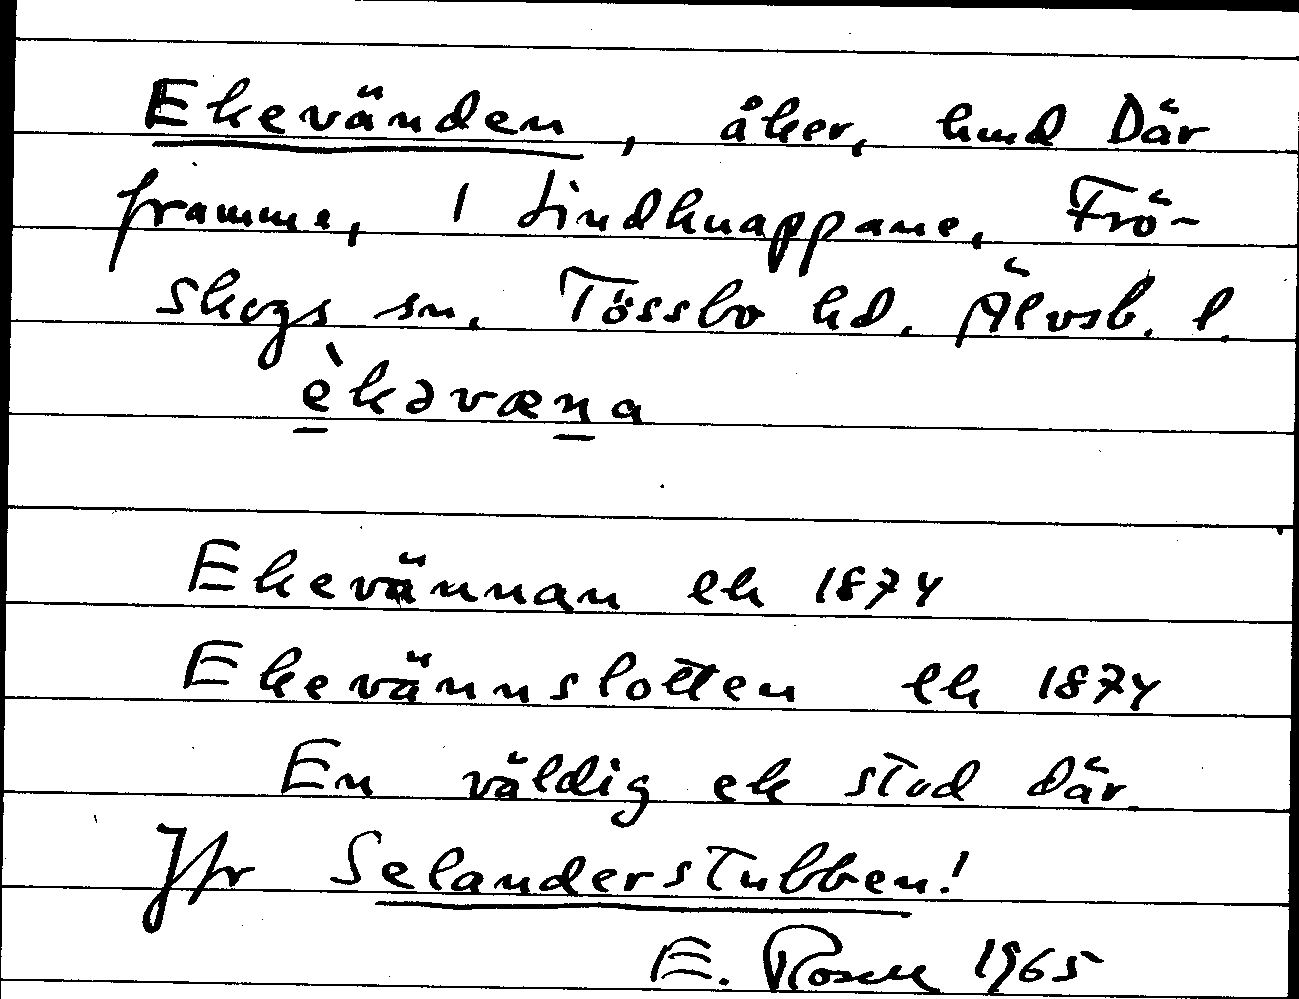 Ekevänden, åker, hmd Där
framme, 1 Lindknappane, Frö-
skogs sn. Tössbo hd. Älvsb. l.
èkəvæna
Ekevännan ek 1874
Ekevännslotten ek 1874
En väldig ek stod där.
Jfr Selanderstubben!
E. Rosell 1965